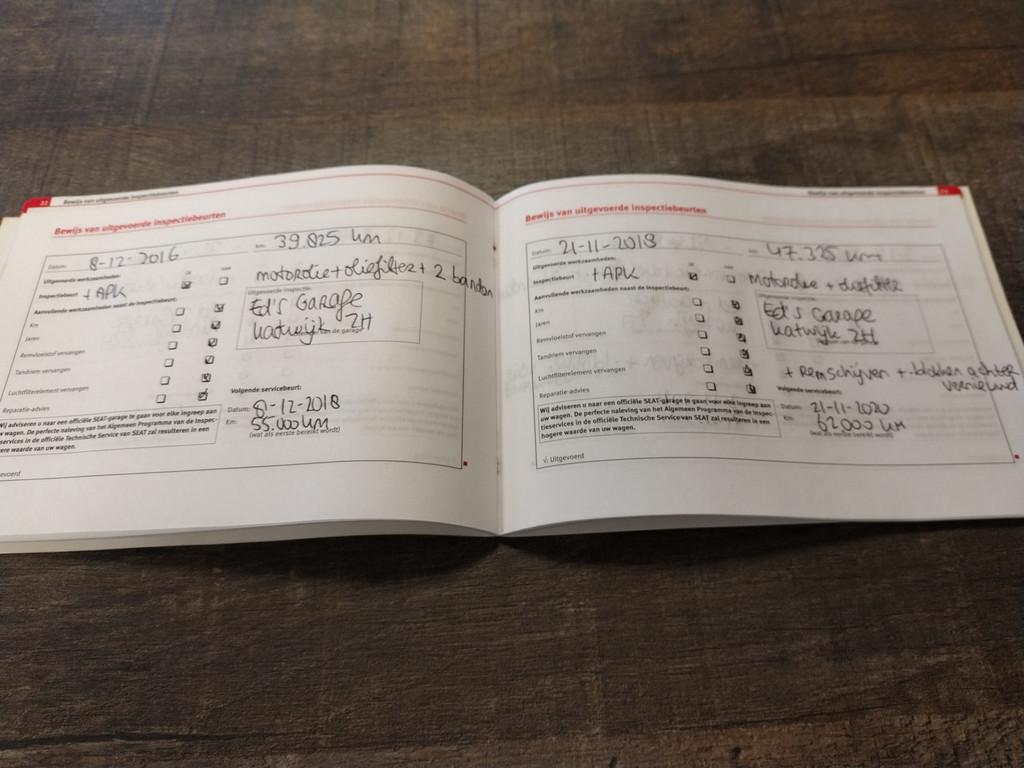 22 Bewijs van uitgevoerde inspectiebeurten
Bewijs van uitgevoerde inspectiebeurten
Datum: 8-12-2016 km: 39.825 km
Uitgevoerde werkzaamheden: ja nee
Inspectiebeurt + APK
motorolie + oliefilter + 2 banden
Aanvullende werkzaamheden naast de inspectiebeurt:
Uitgevoerde inspectie:
Km
Ed's Garage
Jaren
Katwijk ZH
de garage
Remvloeistof vervangen
Tandriem vervangen
Luchtfilterelement vervangen
Reparatie-advies
Volgende servicebeurt:
Datum: 8-12-2018
Km: 55.000 km
(wat als eerste bereikt wordt)
Wij adviseren u naar een officiële SEAT-garage te gaan voor elke ingreep aan
uw wagen. De perfecte naleving van het Algemeen Programma van de Inspec-
tieservices in de officiële Technische Service van SEAT zal resulteren in een
hogere waarde van uw wagen.
gevoerd
Bewijs van uitgevoerde inspectiebeurten
Bewijs van uitgevoerde inspectiebeurten
Datum: 21-11-2018 km: 47.325 km
Uitgevoerde werkzaamheden:
Inspectiebeurt + APK
motorolie + oliefilter
Aanvullende werkzaamheden naast de inspectiebeurt:
Uitgevoerde inspectie:
Km
Ed's Garage
Jaren
Katwijk ZH
Remvloeistof vervangen
Tandriem vervangen
+ Remschijven + blokken achter
vernieuwd
Luchtfilterelement vervangen
Reparatie-advies
Volgende servicebeurt:
Datum: 21-11-2020
Km: 62000 km
(wat als eerste bereikt wordt)
Wij adviseren u naar een officiële SEAT-garage te gaan voor elke ingreep aan
uw wagen. De perfecte naleving van het Algemeen Programma van de Inspec-
tieservices in de officiële Technische Service van SEAT zal resulteren in een
hogere waarde van uw wagen.
√: Uitgevoerd